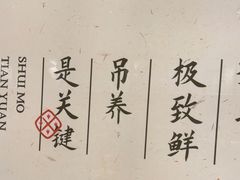 极致鲜
吊养
是关键
SHUI MO
TIAN YUAN